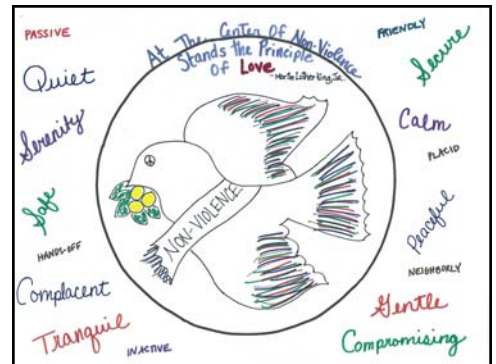 PASSIVE
Quiet
Serenity
Safe
HANDS-OFF
Complacent
Tranquil
INACTIVE
At The Center Of Non-Violence
Stands the Principle
Of Love
-Martin Luther King, Jr.
NON-VIOLENCE
FRIENDLY
Secure
Calm
PLACID
Peaceful
NEIGHBORLY
Gentle
Compromising